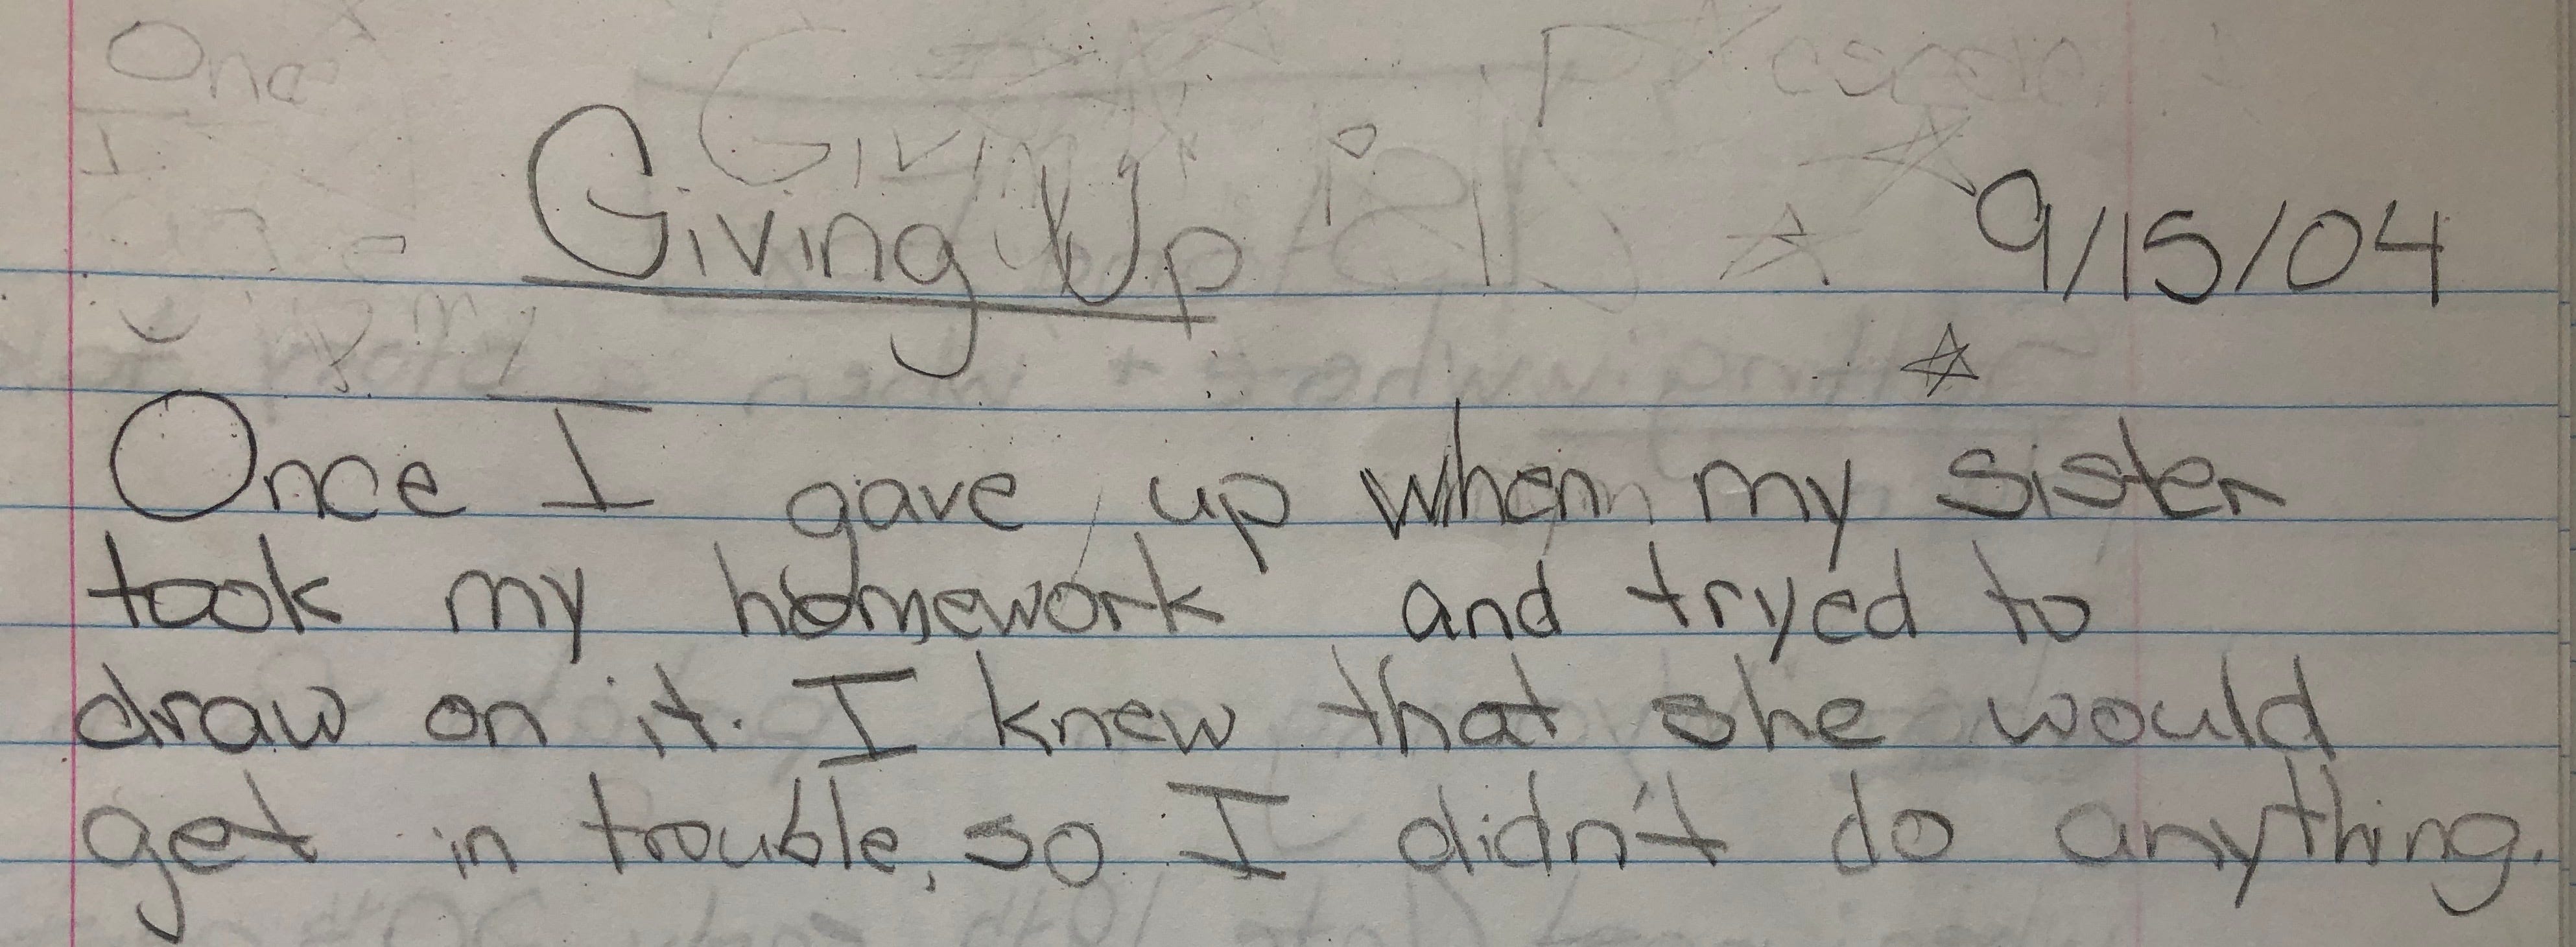 Giving Up 9/15/04
Once I gave up when my sister
took my homework and tryed to
draw on it. I knew that she would
get in trouble, so I didn't do anything.